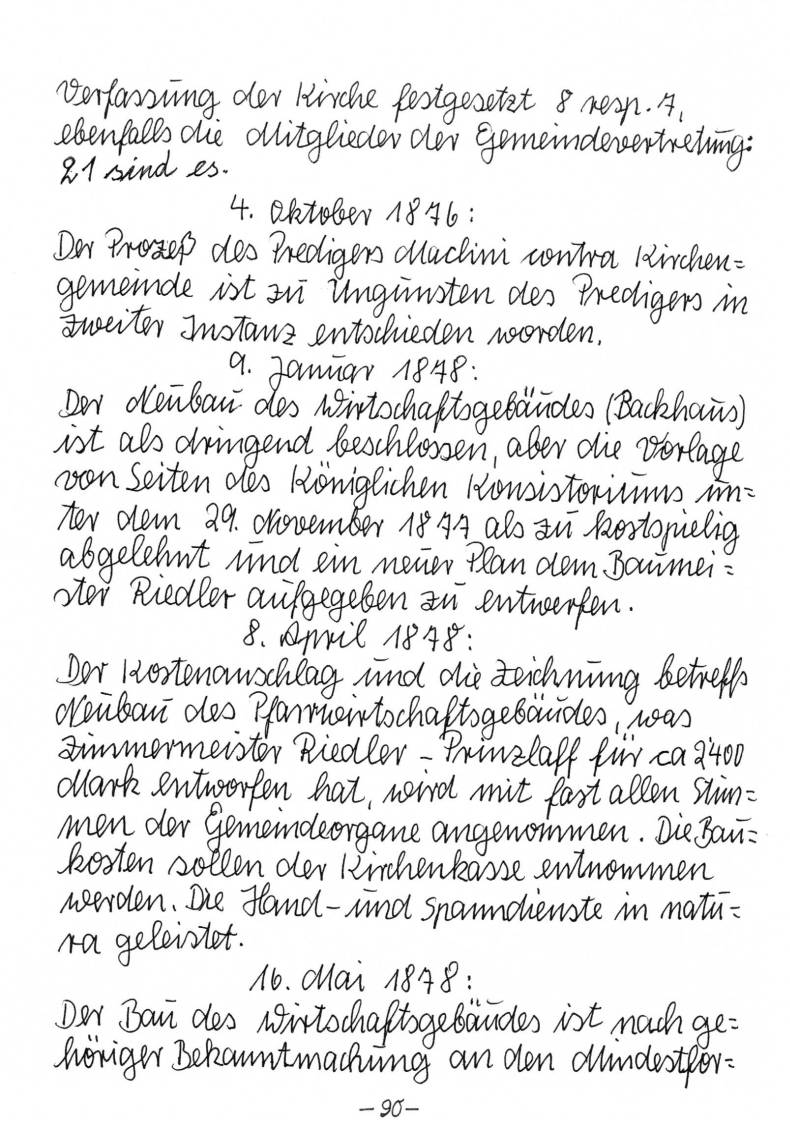 Verfassung der Kirche festgesetzt 8 resp. 7,
ebenfalls die Mitglieder der Gemeindevertretung:
21 sind es.
4. Oktober 1876:
Der Prozeß des Predigers Machini contra Kirchen=
gemeinde ist zu Ungunsten des Predigers in
zweiter Instanz entschieden worden.
9. Januar 1878:
Der Neubau des Wirtschaftsgebäudes (Backhaus)
ist als dringend beschlossen, aber die Vorlage
von Seiten des Königlichen Konsistoriums un=
ter dem 29. November 1877 als zu kostspielig
abgelehnt und ein neuer Plan dem Baumei=
ster Riedler aufgegeben zu entwerfen.
8. April 1878:
Der Kostenanschlag und die Zeichnung betreffs
Neubau des Pfarrwirtschaftsgebäudes, was
Zimmermeister Riedler - Prinzlaff für ca 2400
Mark entworfen hat, wird mit fast allen Stim=
men der Gemeindeorgane angenommen. Die Bau=
kosten sollen der Kirchenkasse entnommen
werden. Die Hand- und Spanndienste in natu=
ra geleistet.
16. Mai 1878:
Der Bau des Wirtschaftsgebäudes ist nach ge=
höriger Bekanntmachung an den Mindestfor=
- 90 -